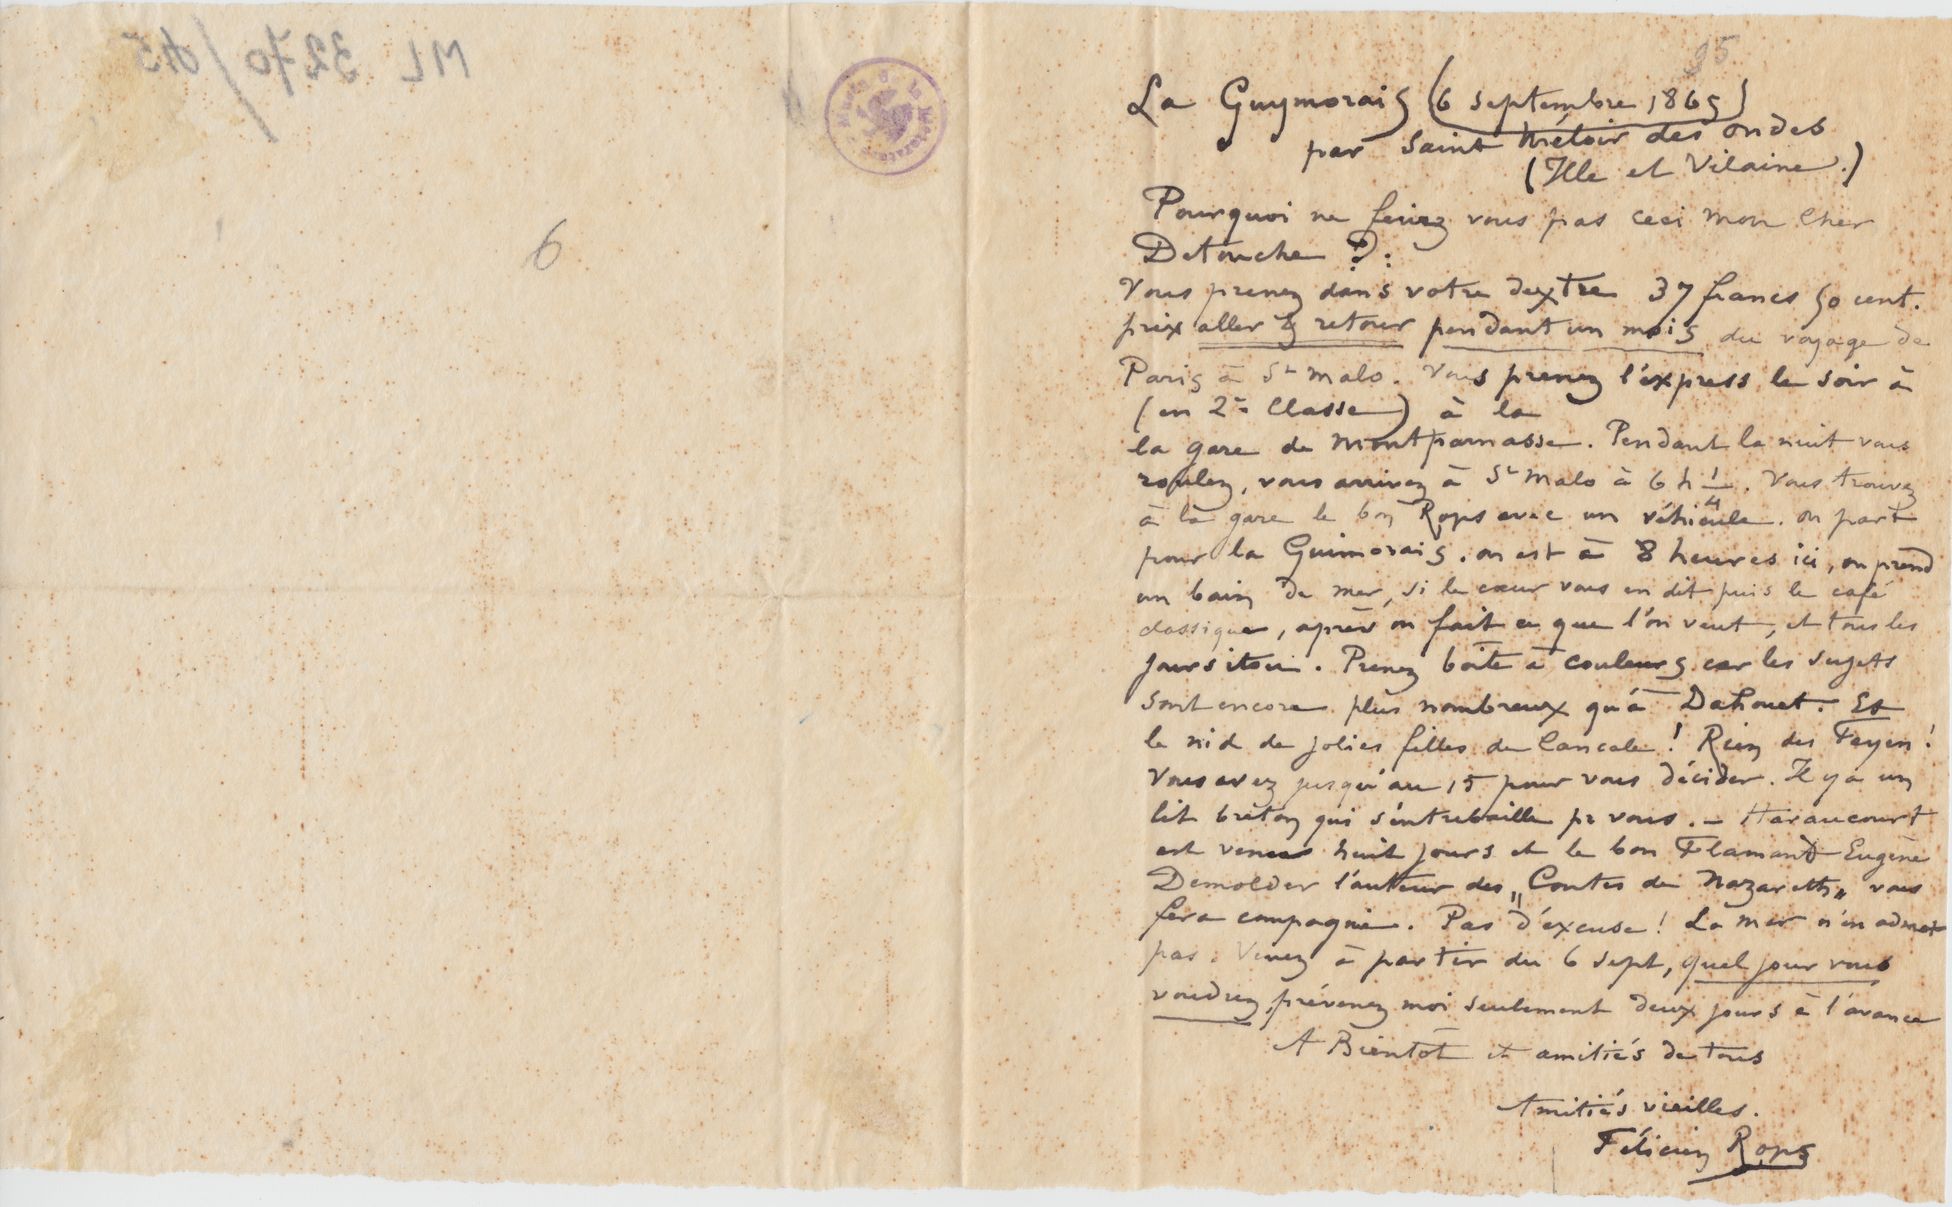 ML 3270/45
6
95
La Guymorais (6 septembre 1865)
par Saint Méloir des ondes
(Ille et Vilaine.)
Pourquoi ne feriez vous pas ceci mon Cher
Detouche ? :
Vous prenez dans votre dextre 37 francs 50 cent.
prix aller & retour pendant un mois du voyage de
Paris à St Malo. Vous prenez l'express le soir à
(en 2e Classe) à la
la gare de Montparnasse. Pendant la nuit vous
roulez, vous arrivez à St Malo à 6 h 1/4. Vous trouvez
à la gare le bon Rops avec un véhicule. on part
pour la Guimorais. on est à 8 heures ici, on prend
un bain de mer, si le cœur vous en dit puis le café
classique, après on fait ce que l'on veut, et tous les
jours itou. Prenez boîte à couleurs car les sujets
sont encore plus nombreux qu'à Dahouet. Et
le nid de jolies filles de Cancale ! Rien des Feyen !
Vous avez jusqu'au 15 pour vous décider. Il y a un
lit breton qui s'entrebaille pr vous. – Haraucourt
est venu huit jours et le bon Flamand Eugène
Demolder l'auteur des „Contes de Nazareth„ vous
fera compagnie. Pas d'excuse ! La mer n'en admet
pas. Venez à partir du 6 sept, quel jour vous
voudrez, prévenez moi seulement deux jours à l'avance
A Bientôt et amitiés de tous
Amitiés vieilles.
Félicien Rops